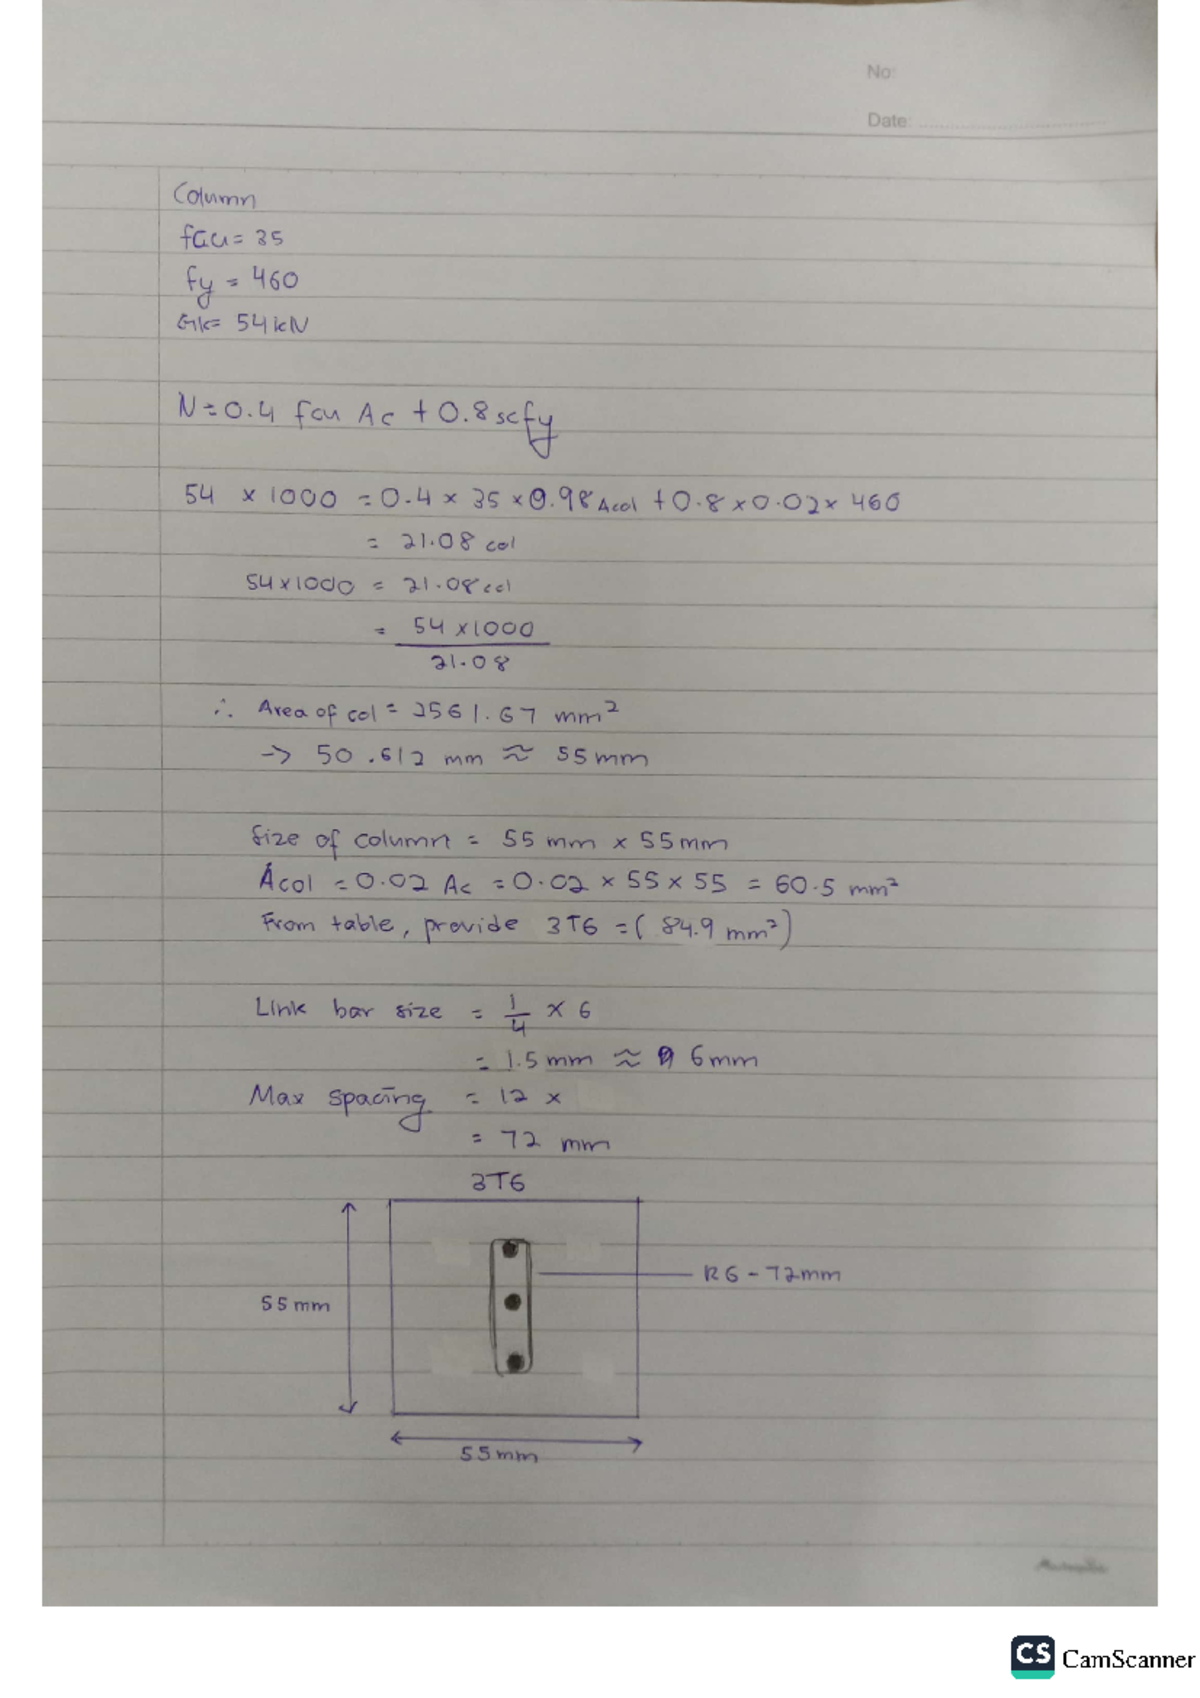 No:
Date:
Column
fcu = 35
fy = 460
Gk = 54kN
N = 0.4 fcu Ac + 0.8 scfy
54 × 1000 = 0.4 × 35 × 0.98 Acol + 0.8 × 0.02 × 460
= 21.08 col
54×1000 = 21.08 col
= 54 ×1000
21.08
∴ Area of col = 2561.67 mm²
→ 50.612 mm ≈ 55mm
Size of column = 55 mm × 55mm
Acol = 0.02 Ac = 0.02 × 55 × 55 = 60.5 mm²
From table, provide 3T6 = ( 84.9 mm²)
Link bar size = 1/4 × 6
= 1.5mm ≈ 6mm
Max spacing = 12 ×
= 72 mm
3T6
R6 - 72mm
55mm
55mm
CS CamScanner